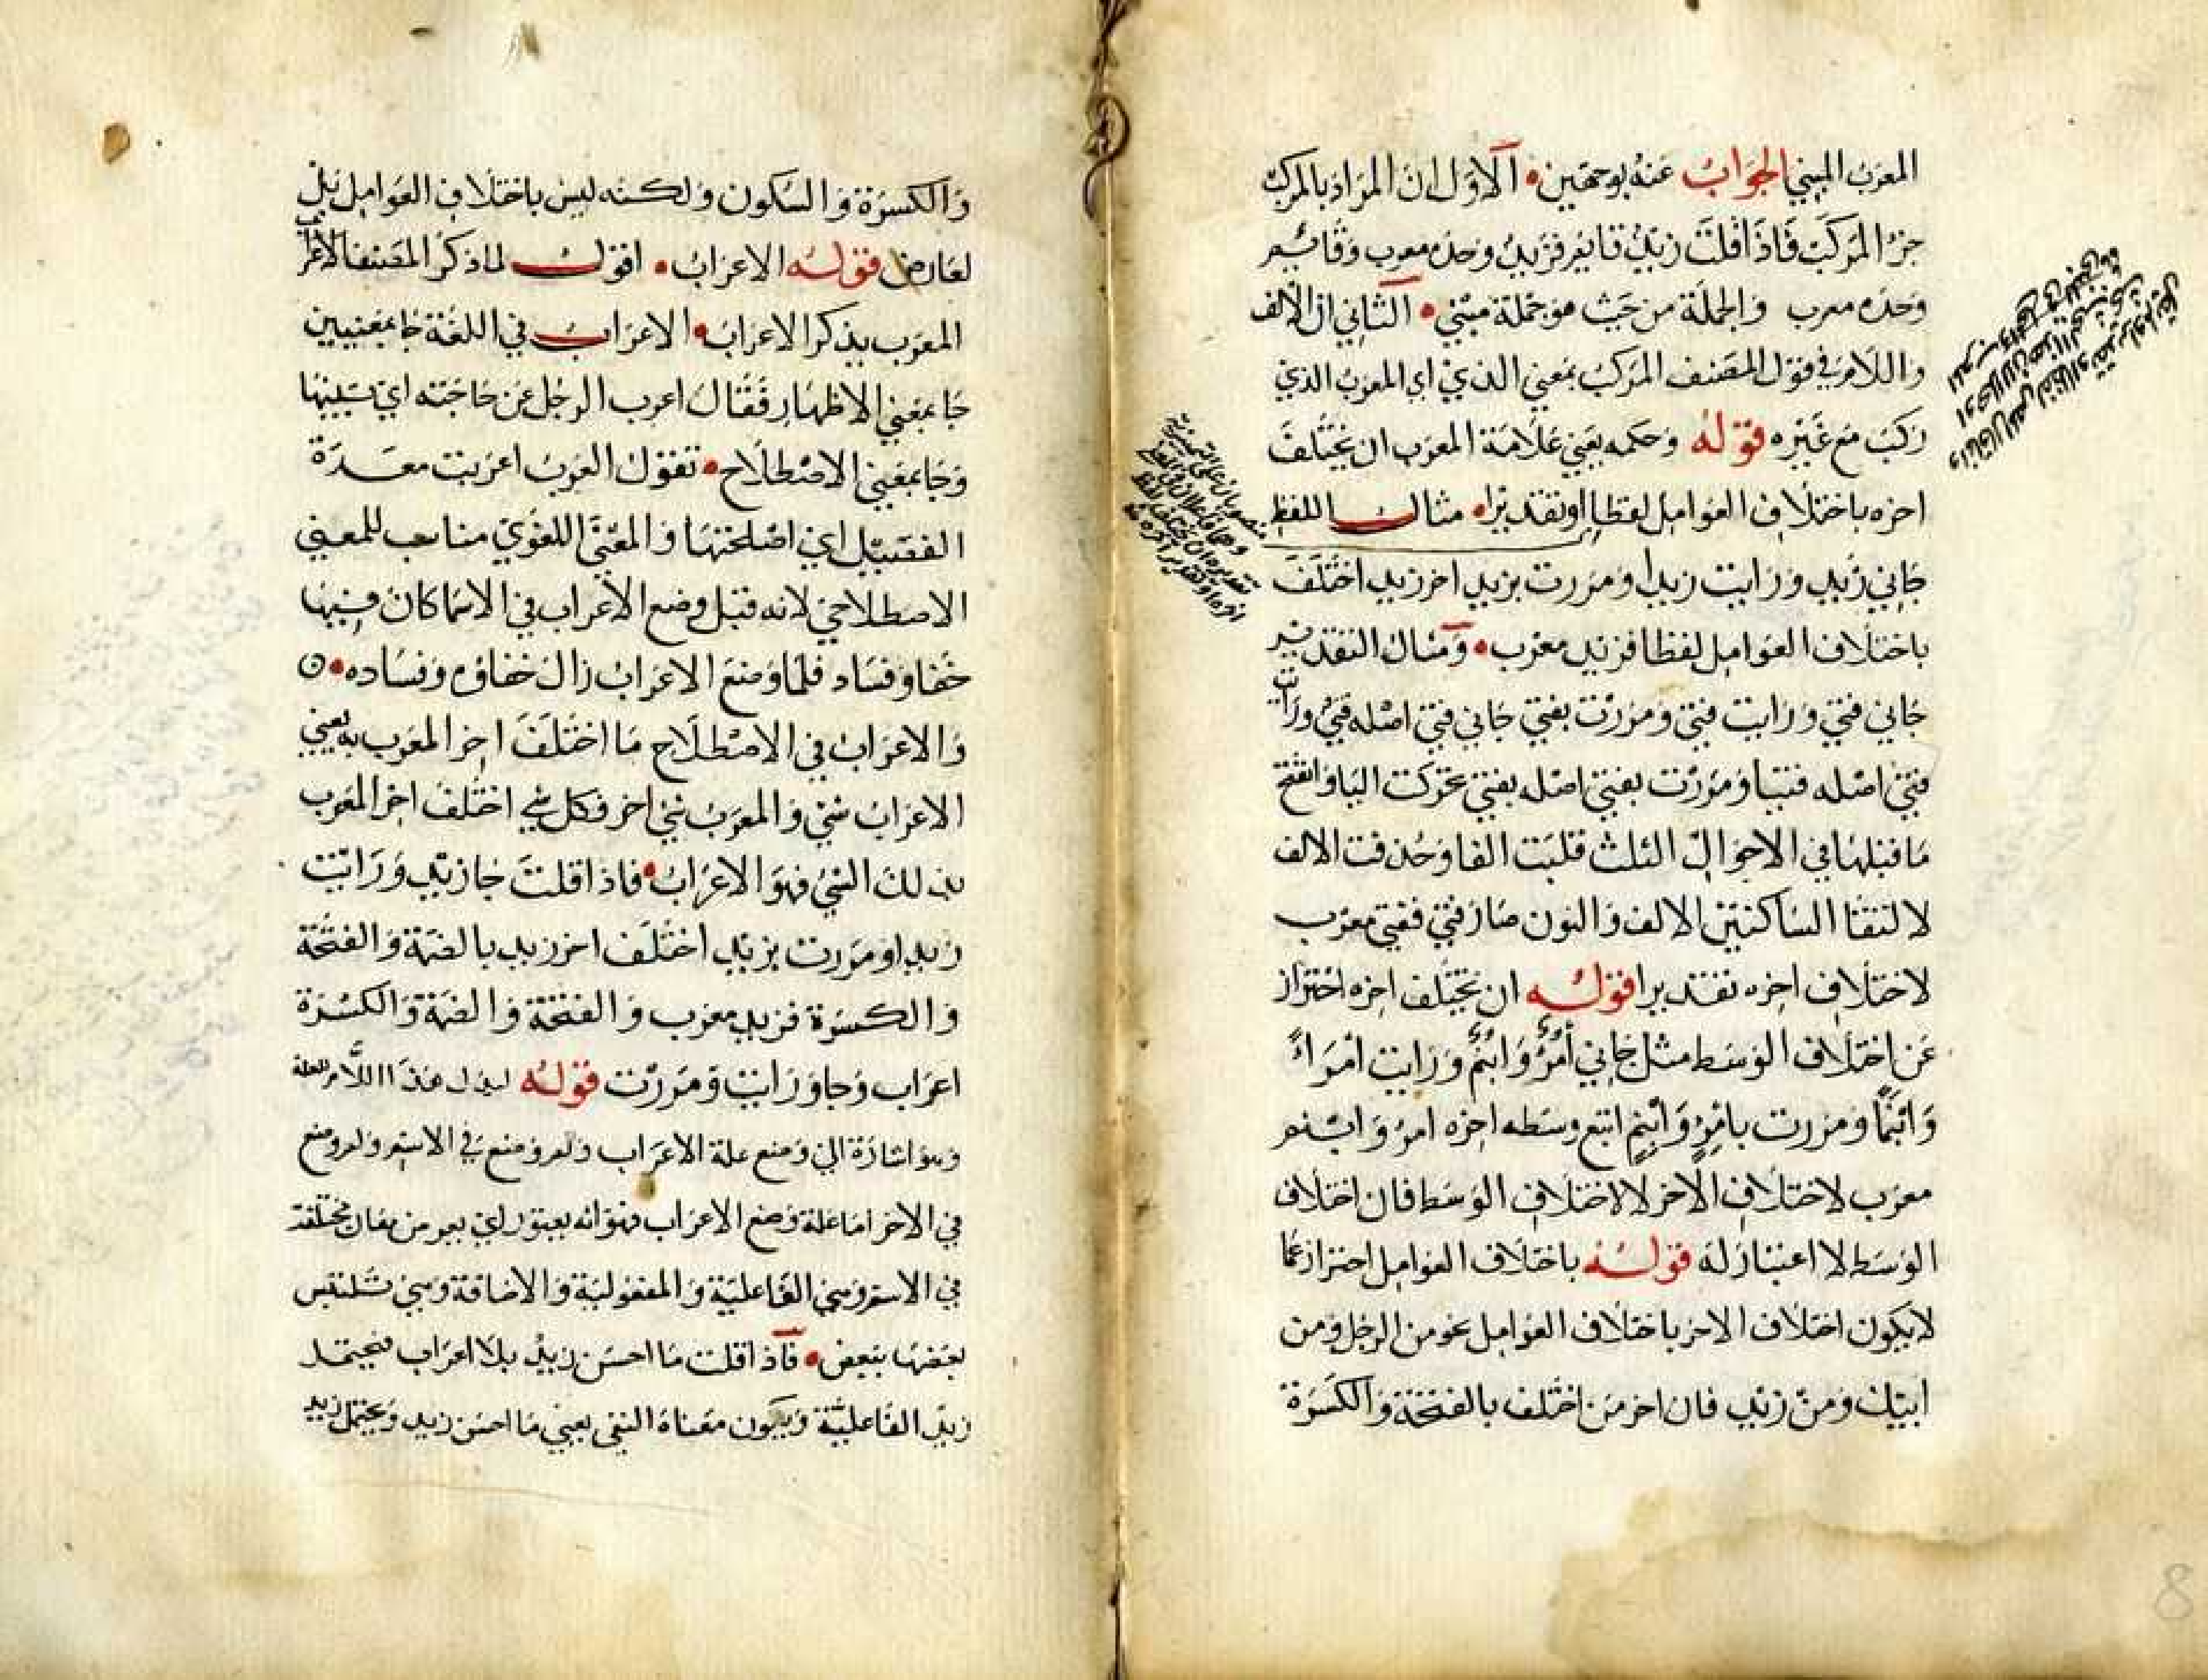 المعرَب المبني الجوَابُ عَنهُ بوجهين • اَلاوّل ان المرَاد بالمركب
جزءُ المرَكّب فَاذَا قلتَ زيدٌ قايم فزَيدٌ وحدَه معرب وقَايم
وَحدَه معرب وَالجملَة من حَيث هو جملة مبني • الثّاني ان الالف
وَاللَامر في قول المصَنف المرَكبُ بمعني الذي اي المعربُ الذي
رَكبَ مَع غَيره قوله وَحكمه يعني علَامَة المعرب ان يختلفَ
اخره باختلَاف العوَامل لفظا او تقديرًا • مثال اللفظ
جَاني زيد وَرَايت زيدا وَمررت بزيد اخر زيد اختلفَ
باختلَاف العوَامل لفظا فزيد معرَب • وَمثال التقدير
جَاني فتي وَرَايت فتي وَمرَرت بفتي جَاني فتي اصله فتي ورَايت
فتي اصله فتيا وَمرَرت بفتي اصله بفتي تحركت اليَا وَانفتح
مَا قبلهَا في الاحوَال الثلث قلبَت الفا وَحذفت الالف
لالتقَا السَاكنَين الالف وَالنون صَار فتي ففتي معرَب
لاختلَاف اخره تقديرا قوله ان يختَلف اخره احترَاز
عَن اختلَاف الوَسَط مثل جَاني اَمْرُؤٌ وَابنُمٌ وَرَايت امرَاءً
وَابنَمًا وَمرَرت بامرِءٍ وَابنِمٍ اتبع وسَطه اخره امرؤ وَابنم
معرَب لاختلَاف الاخر لا لاختلَاف الوَسَط فان اختلَاف
الوَسَط لا اعتبَار لَه قولُهُ باختلَاف العوَامل احترَاز عمَا
لا يكون اختلَاف الاخر باختلَاف العوَامل نحو من الرجل ومن
ابيك وَمن زيد فان اخر من اختلف بالفتحَة وَالكَسرَة
وَالكسرَة وَالسّكون وَلكنه ليسَ باختلَاف العوَامل بل
لعَارض قولُه الاعرَاب • اقول لما ذكر المصَنف الاعراب
المعرَب بذكر الاعرَاب • الاعرَاب في اللغَة جَا بمعنيين
جَا بمعَني الاظهَار فقَال اعرب الرجُل عَن حَاجَته اي يبينهَا
وَجَا بمعَني الاصطلَاح • تقول العَربُ اعربت معدَة
الفصَيل اي اصلحتهَا وَالمعنَي اللغَوي مناسب للمعني
الاصطلَاحي لانه قبل وضع الاعرَاب في الاسما كان فيهَا
خفَا وَفسَاد فلمَا وَضعَ الاعرَاب زال خفاؤه وَفسَاده •
وَالاعرَاب في الاصطلَاح مَا اختلَفَ اخر المعرَب به يعني
الاعرَاب شي وَالمعرَب شي اخر فكل شي اختلفَ اخر المعَرب
بذلك الشي فهوَ الاعرَاب • فاذا قلتَ جَا زيد وَرَايت
زيدا وَمررت بزيد اختلَف اخر زيد بالضمَة وَالفتحَة
وَالكسرَة فزيد معرَب وَالفتحَة وَالضمَة وَالكسرَة
اعرَاب وَجَا وَرَايت وَمرَرت قوله ليدل هَذا اللَّام للعلة
وهو اشارَة الي وَضع علة الاعرَاب وَلم وضع في الاسم ولم وضع
في الاخر امَا علة وَضع الاعرَاب فهوَ انه يعتور اي يجي من معَان مختلفة
في الاسم وَهي الفَاعليَة وَالمفعوليَة وَالاضَافة وَهي تلتبس
بعَضهَا ببَعض • فَاذا قلت مَا احسَن زيد بلا اعرَاب فيحتمل
زيد الفَاعليَة وَيكون معناه النفي يعني مَا احسن زيد وَيحتمل زيد
8